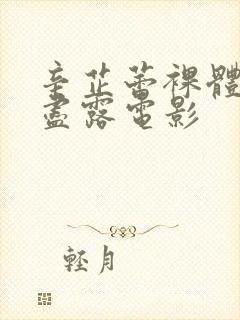 辛芷蕾裸體
盡露電影
輕月